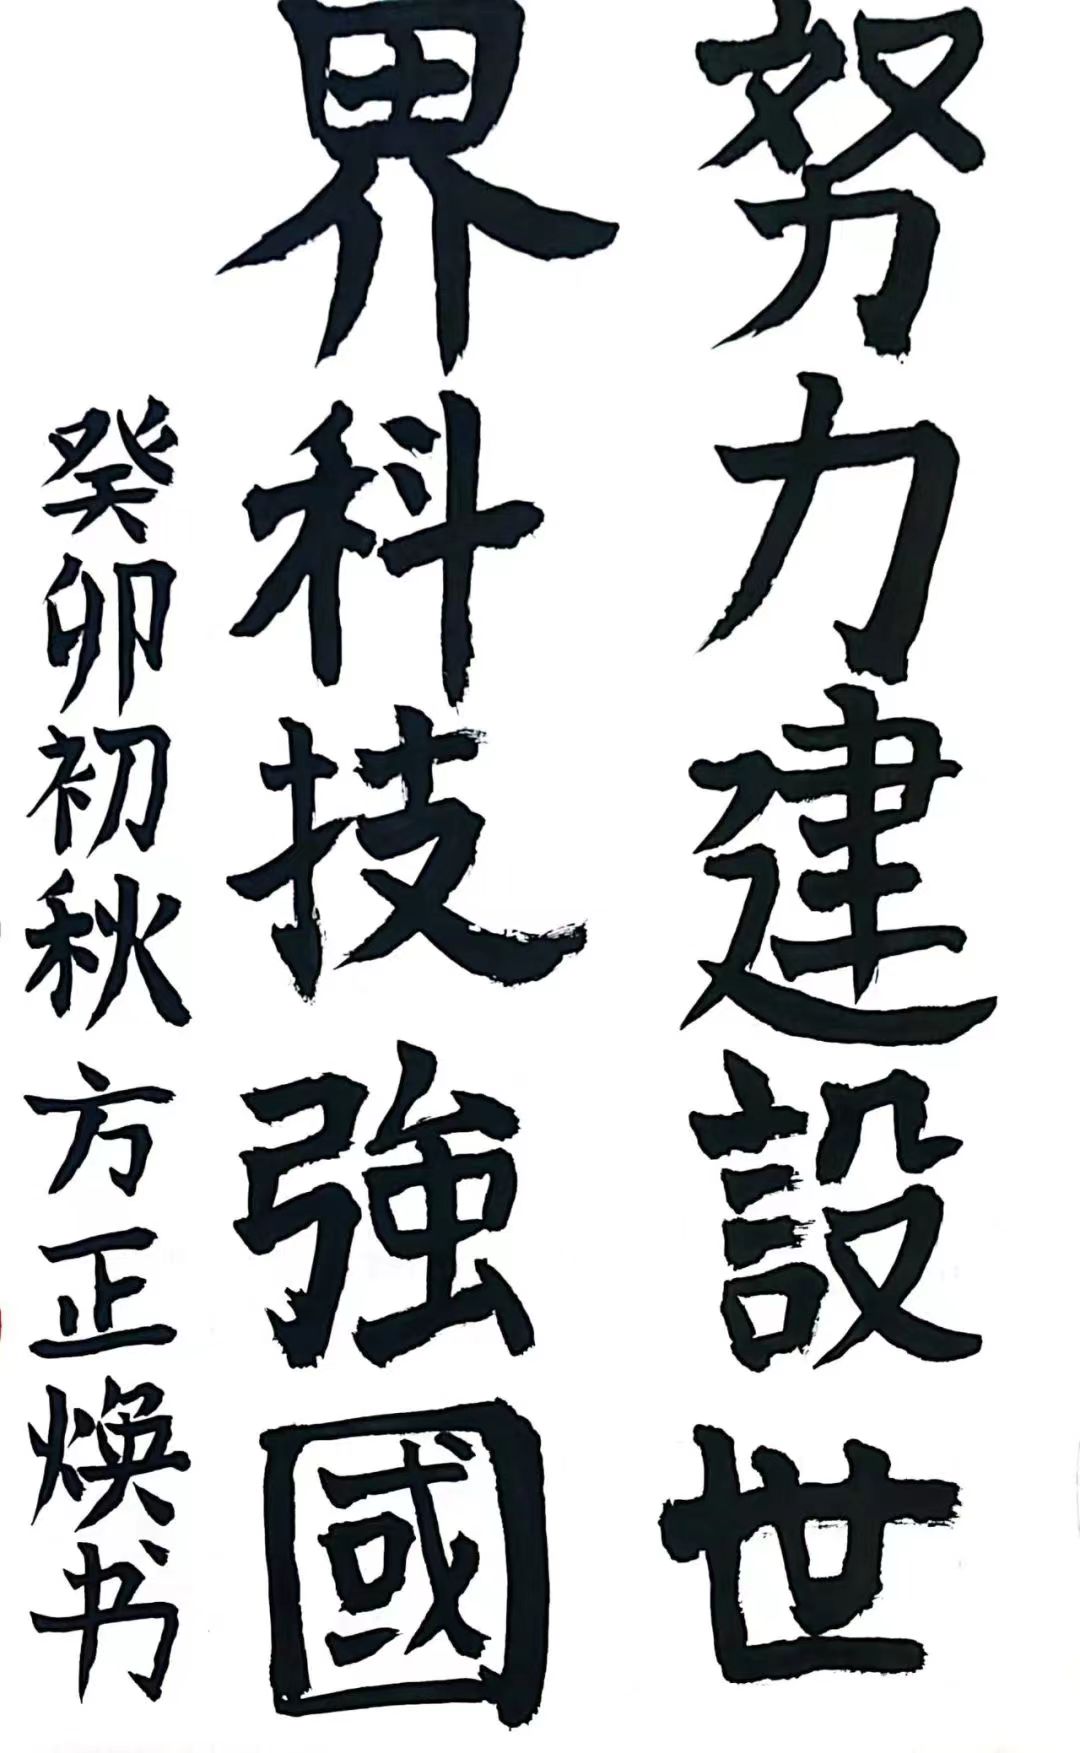 努力建設世
界科技強國
癸卯初秋方正焕书